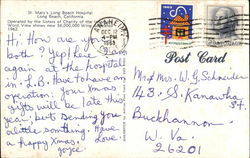 St. Mary's Long Beach Hospital
Long Beach, California
Operated by the Sisters of Charity of the
Word. View shows new $6,000,000
ANAHEIM
DEC 12
4 PM
1963
Post Card
Hi, How are you
both? Yep! here
again at the hospital
in L.B. Have to have an
operation. Your Xmas
Gifts will be late this
year, but Sending you
little something. Have
a happy Xmas. Love,
Joyce
Mr & Mrs. U.G. Schneider
143 S. Kanawha
St.
Buckhannon
W. Va
26201